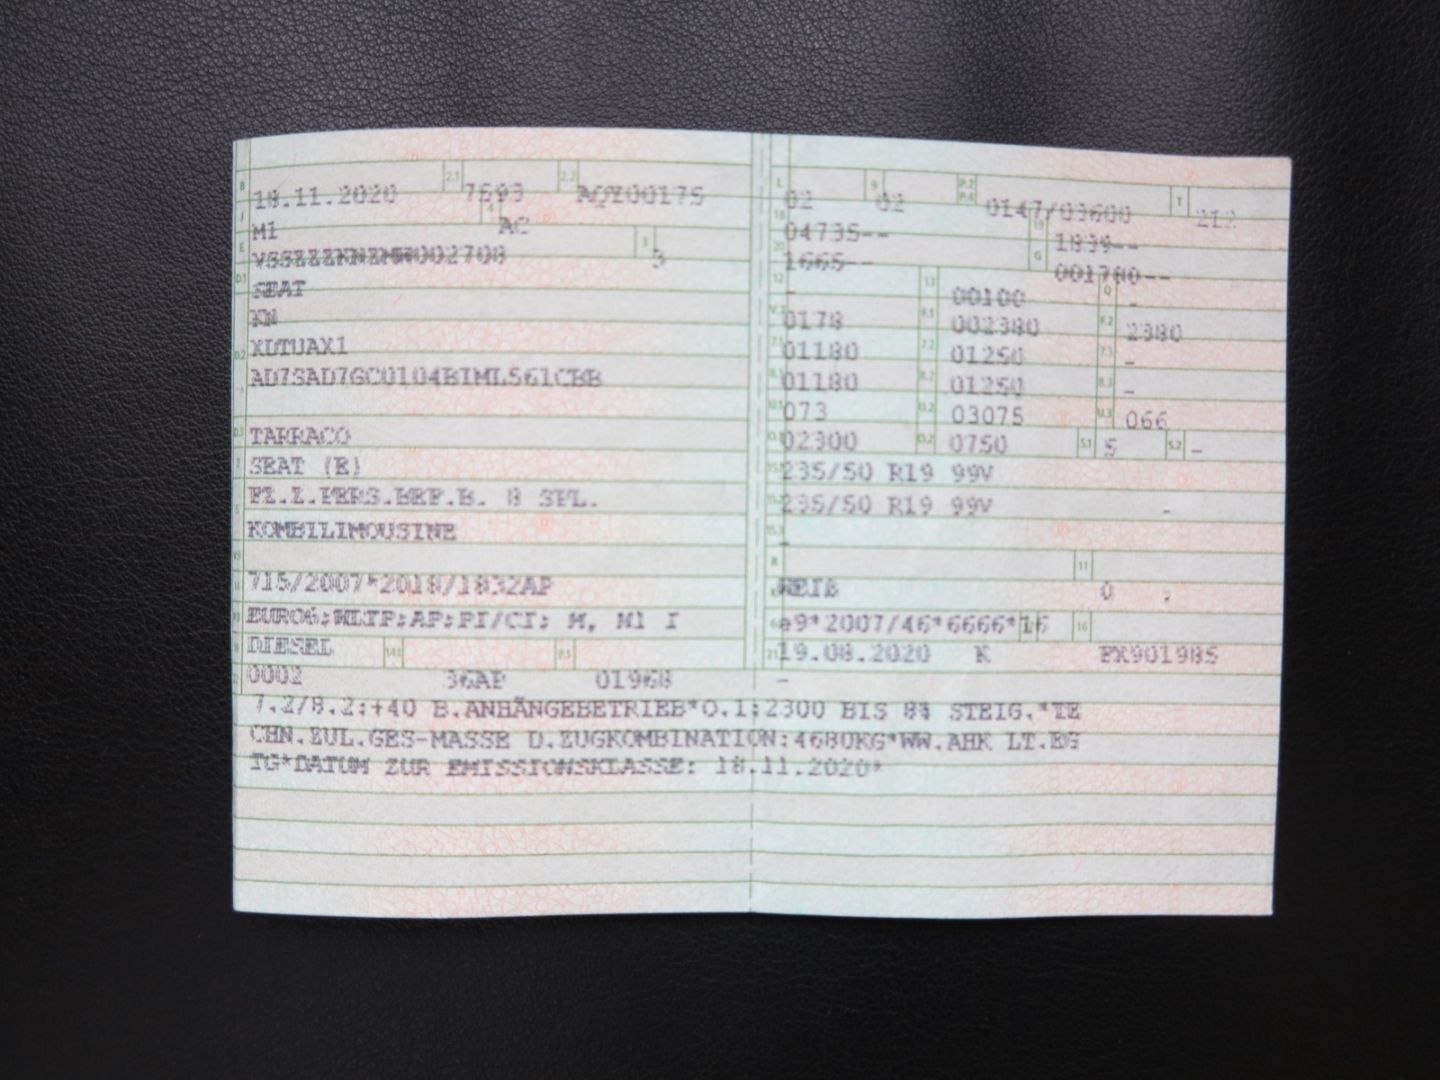 B 18.11.2020 2.1 7593 2.2 L 02 9 02 P.2 P.4 0147/03600 T 212
J M1 4 AC 18 04735-- 19 1839--
E 3 3 20 1665-- G 001780--
D.1 SEAT 12 - 13 00100 Q -
KN V.7 0178 F.1 002380 F.2 2380
D.2 XDTUAX1 7.1 01180 7.2 01250 7.3 -
AD7SAD7GC0104BIML561CBB 8.1 01180 8.2 01250 8.3 -
U.1 073 U.2 03075 U.3 066
D.3 TARRACO O.1 02300 O.2 0750 S.1 5 S.2 -
2 SEAT (E) 15.1 235/50 R19 99V
5 FZ.Z.PERS.BEF.B. 8 SPL. 15.2 235/50 R19 99V
KOMBILIMOUSINE 15.3 -
V.9 715/2007*2018/1832AP R WEIß 11 0
14 EURO6;WLTP;AP;PI/CI; M, N1 I K e9*2007/46*6666*16 16
P.3 DIESEL 14.1 P.1 6 19.08.2020 K FX901985
10 0002 36AP 01968 21 -
7.2/8.2:+40 B.ANHÄNGEBETRIEB*O.1:2300 BIS 8% STEIG.*TE
CHN.ZUL.GES-MASSE D.ZUGKOMBINATION:4680KG*WW.AHK LT.EG
TG*DATUM ZUR EMISSIONSKLASSE: 18.11.2020*